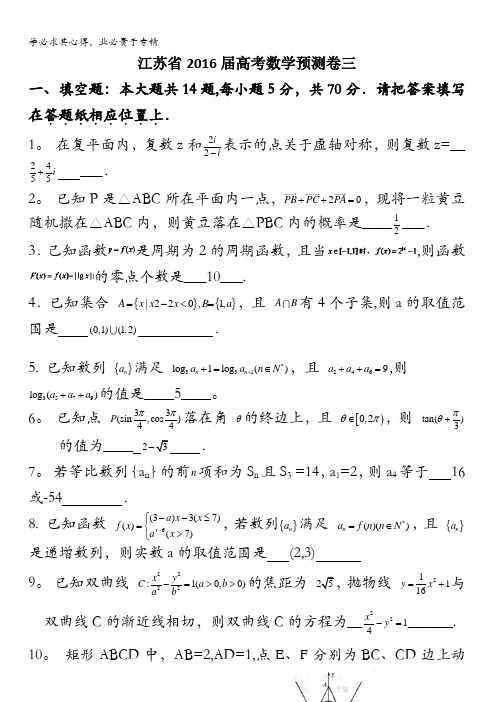 学必求其心得，业必贵于专精
江苏省2016届高考数学预测卷三
一、填空题：本大题共14题,每小题5分，共70分．请把答案填写
在答题纸相应位置上．
1。 在复平面内，复数z和\frac{2i}{2-i}表示的点关于虚轴对称，则复数z=__
\frac{2}{5}+\frac{4}{5}i ______．
2。 已知P是△ABC所在平面内一点，\overline{PB}+\overline{PC}+2\overline{PA}=0，现将一粒黄豆
随机撒在△ABC内，则黄豆落在△PBC内的概率是_____\frac{1}{2}____．
3．已知函数y=f(x)是周期为2的周期函数，且当x∈[-1,1]时，f(x)=2^{|x|}-1,则函数
F(x)=f(x)-|lg x|的零点个数是___10___．
4．已知集合 A={x|x2-2x<0},B={1,a}，且 A∩B有4个子集,则a的取值范
围是 (0,1)∪(1,2) ．
5. 已知数列 {a_n}满足 log_3 a_n+1=log_3 a_{n+1}(n∈N^*)，且 a_2+a_4+a_6=9,则
log_3(a_5+a_7+a_9)的值是_____5_____。
6。 已知点 P(sin\frac{3π}{4},cos\frac{3π}{4})落在角θ的终边上，且 θ∈[0,2π)，则 tan(θ+\frac{π}{3})
的值为_____2-√3 ．
7。 若等比数列{a_n}的前n项和为S_n且S_3=14，a_1=2，则a_4等于 16
或-54 ．
8. 已知函数 f(x)={(3-a)x-3(x≤7) a^{x-6}(x>7)，若数列{a_n}满足 a_n=f(n)(n∈N^*)，且 {a_n}
是递增数列，则实数a的取值范围是 (2,3)
9。 已知双曲线 C:\frac{x^2}{a^2}-\frac{y^2}{b^2}=1(a>0,b>0)的焦距为 2√5，抛物线 y=\frac{1}{16}x^2+1与
双曲线C的渐近线相切，则双曲线C的方程为__\frac{x^2}{4}-y^2=1_______.
10。 矩形ABCD中，AB=2,AD=1,点E、F分别为BC、CD边上动
y
A